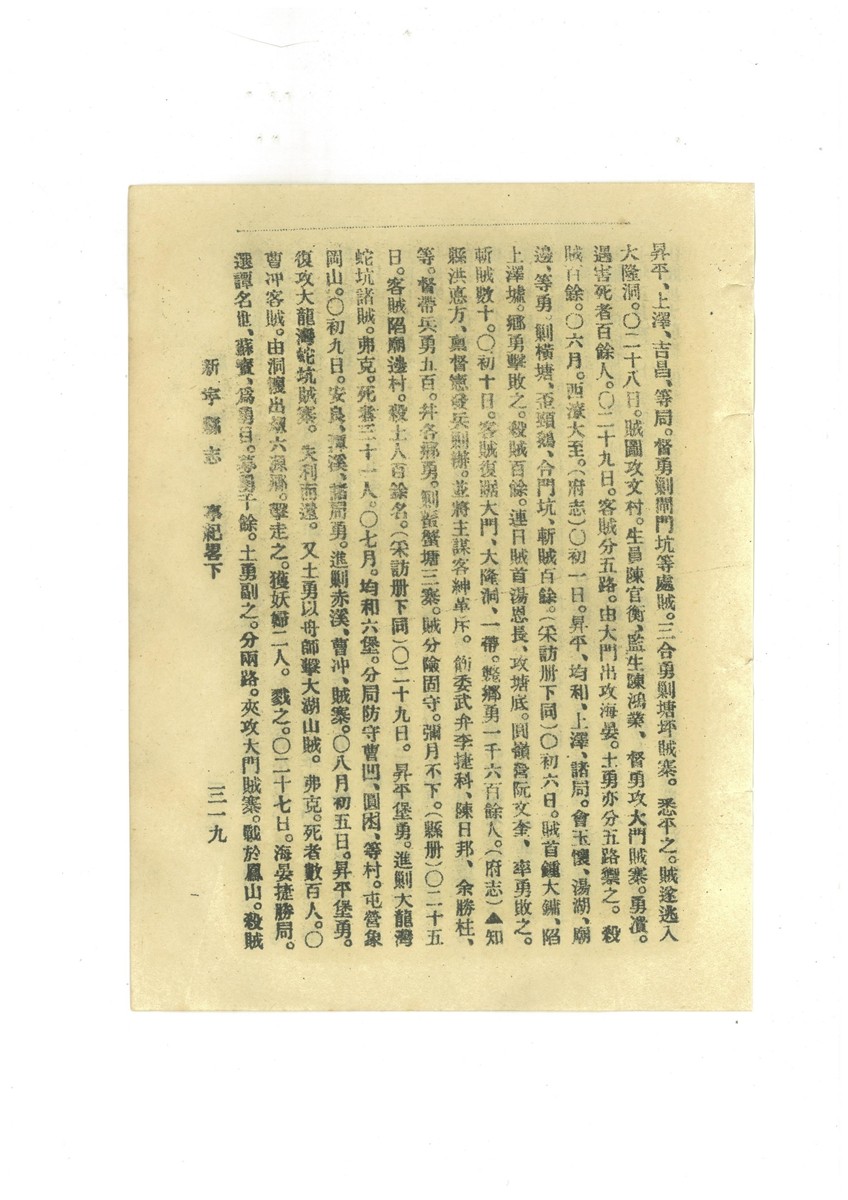 昇平、上澤、吉昌、等局。督勇剿閘門坑等處賊。三合勇剿塘坪賊寨。悉平之。賊遂逃入
大隆洞。〇二十八日。賊圍攻文村。生員陳官衡、監生陳鴻業、督勇攻大門賊寨。勇潰。
遇害死者百餘人。〇二十九日。客賊分五路。由大門出攻海晏。土勇亦分五路禦之。殺
賊百餘。〇六月。西潦大至。(府志)〇初一日。昇平、均和、上澤、諸局。會玉懷、湯湖、廟
邊、等勇。剿橫塘、歪頸鵝、合門坑、斬賊百餘。(采訪册下同)〇初六日。賊首鍾大鏞、陷
上澤墟。鄉勇擊敗之。殺賊百餘。連日賊首湯恩長、攻塘底。圓嶺營阮文奎、率勇敗之。
斬賊數十。〇初十日。客賊復踞大門、大隆洞、一帶。斃鄉勇一千六百餘人。(府志)▲知
縣洪憲方、稟督憲發兵剿辦。並將主謀客紳革斥。飭委武弁李捷科、陳日邦、余勝柱、
等。督帶兵勇九百。幷各鄉勇。剿螃蟹塘三寨。賊分險固守。彌月不下。(縣册)〇二十五
日。客賊陷廟邊村。殺土人百餘名。(采訪册下同)〇二十九日。昇平堡勇。進剿大龍灣
蛇坑諸賊。弗克。死者三十一人。〇七月。均和六堡。分局防守曹凹、圓困、等村。屯營象
岡山。〇初九日。安良、潭溪、諸局勇。進剿赤溪、曹冲、賊寨。〇八月初五日。昇平堡勇。
復攻大龍灣蛇坑賊寨。失利而還。又土勇以舟師擊大湖山賊。弗克。死者數百人。〇
曹冲客賊。由洞𡶐出刼六鄉。擊走之。獲妖婦二人。戮之。〇二十七日。海晏捷勝局。
選譚名世、蘇寶、爲勇目。募勇千餘。土勇副之。分兩路。夾攻大門賊寨。戰於鳳山。殺賊
新寧縣志 事紀畧下 三一九